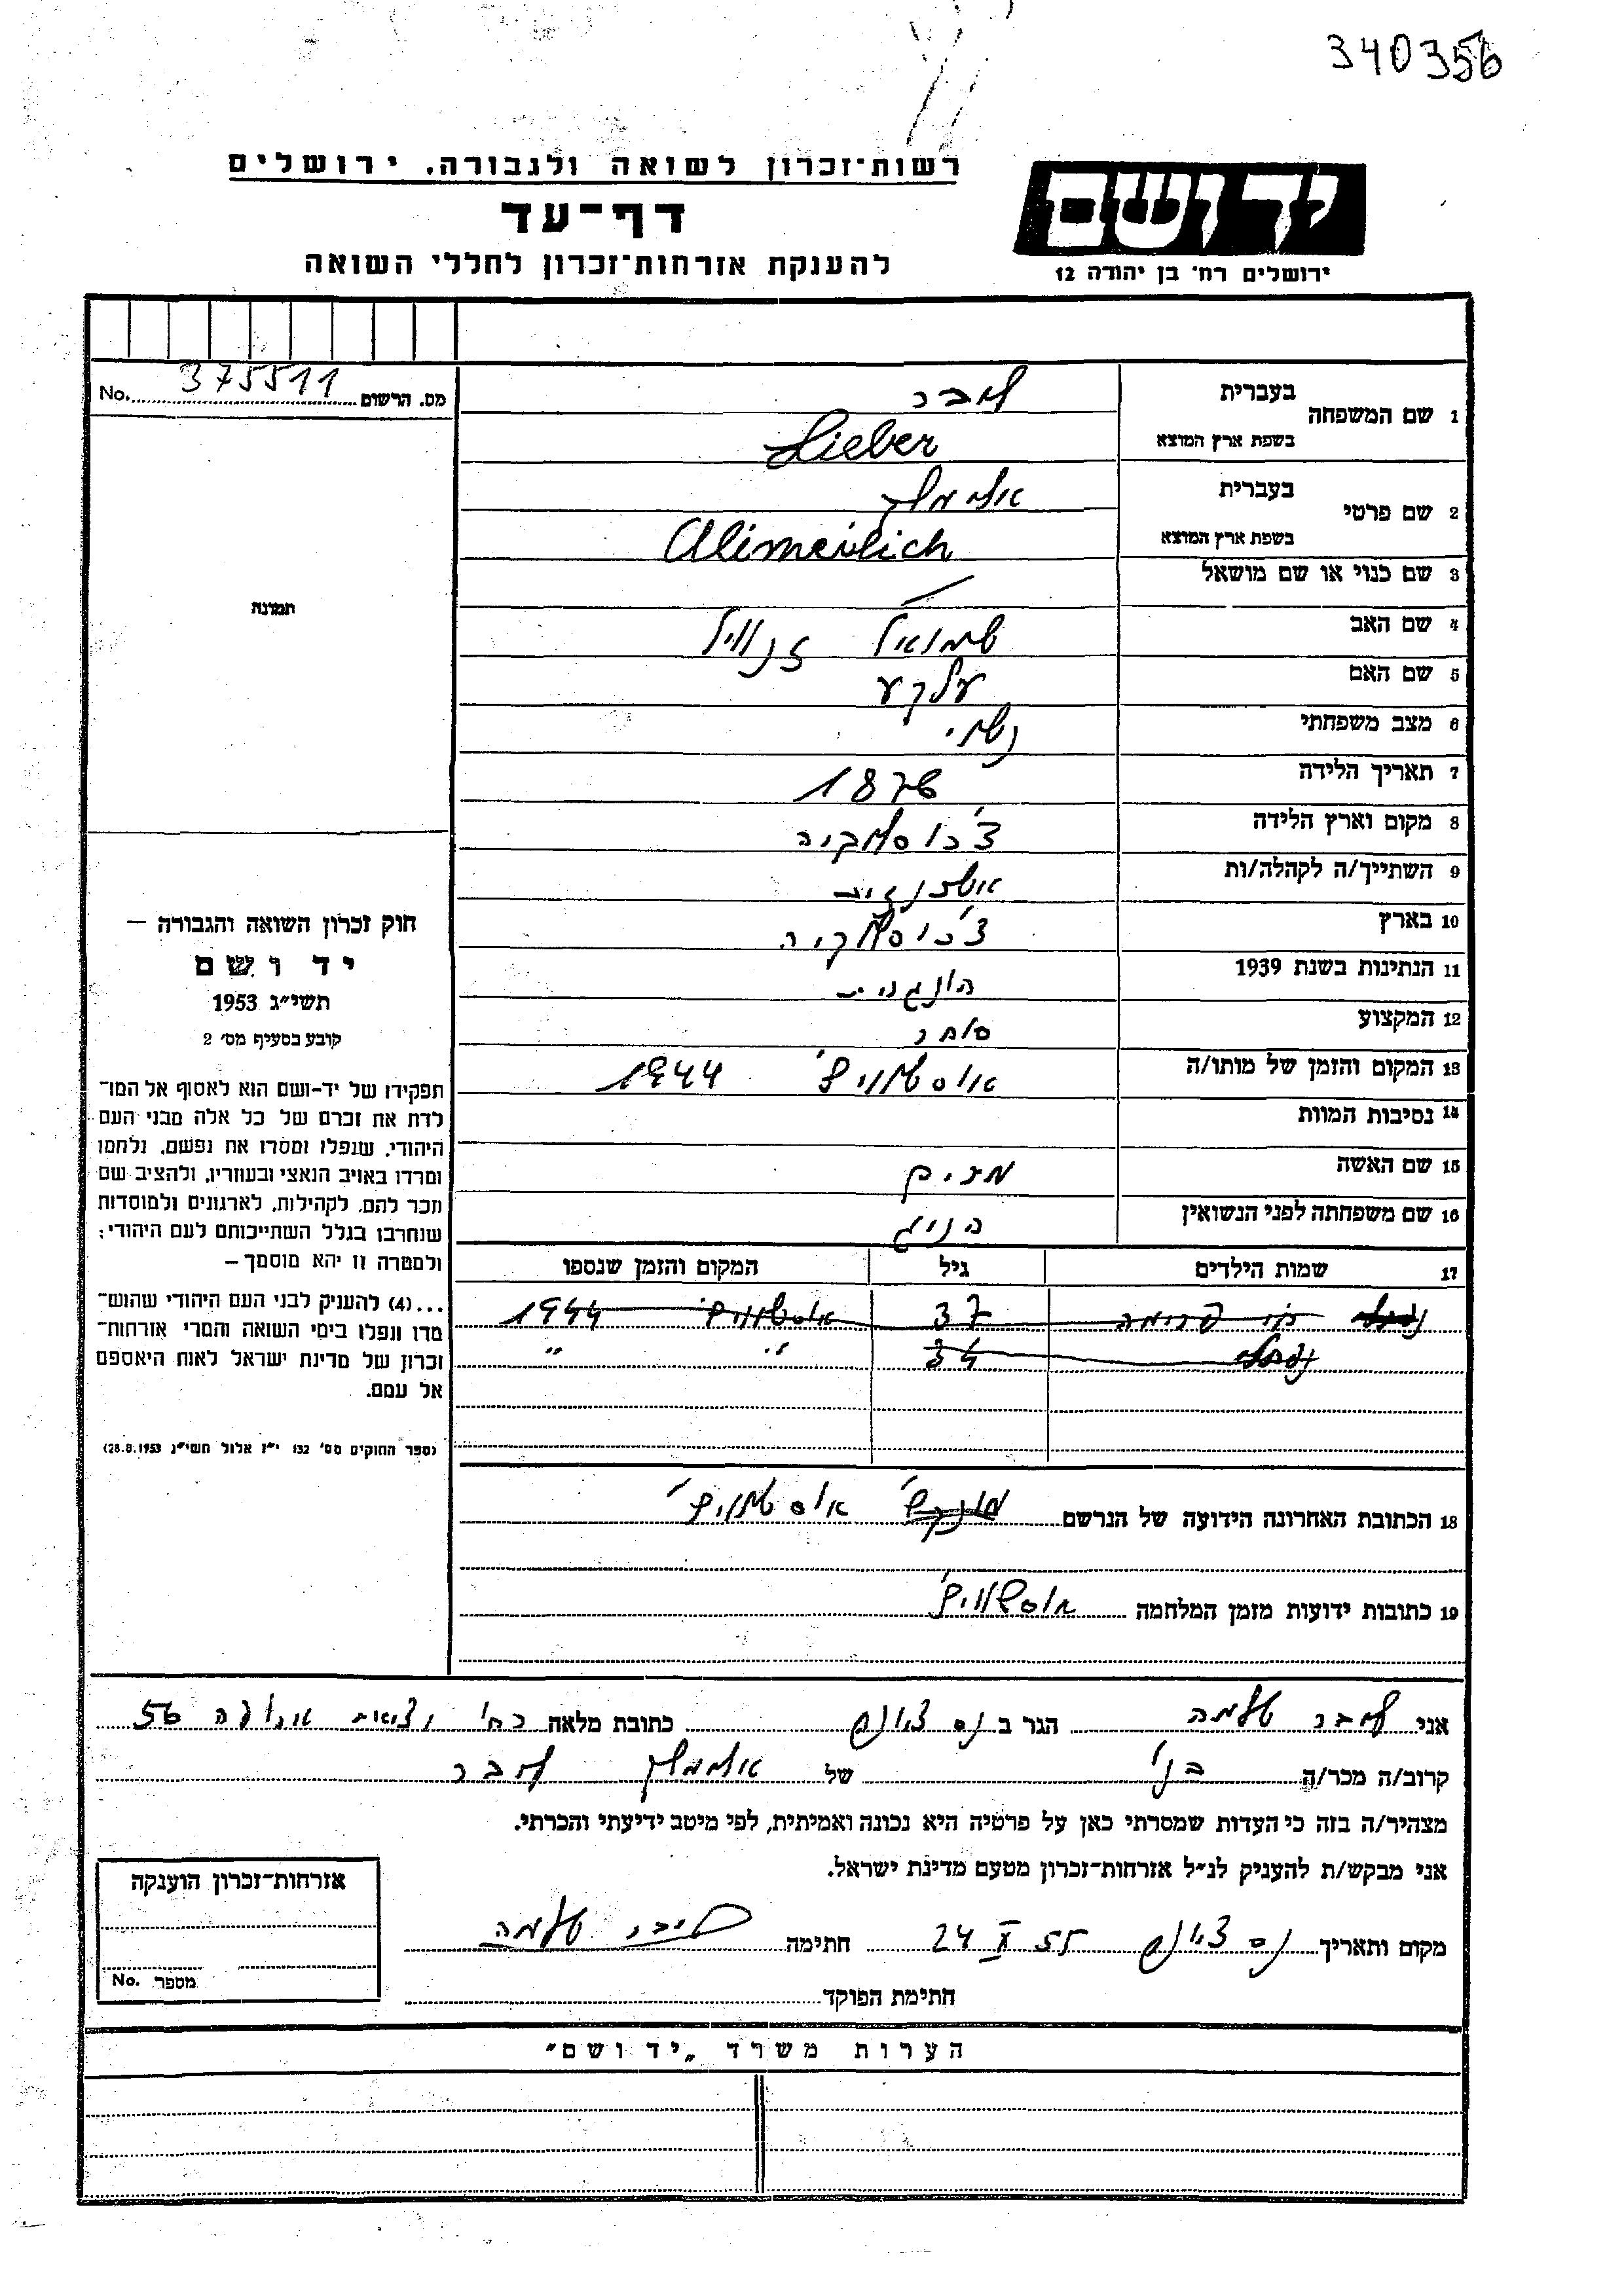 340356
רשות־זכרון לשואה ולגבורה, ירושלים
דף־עד
להענקת אזרחות־זכרון לחללי השואה
יד ושם
ירושלים רח' בן יהודה 12
מס. הרשום 375511 No.
1 שם המשפחה
בעברית ליבר
בשפת ארץ המוצא Lieber
2 שם פרטי
בעברית אלימלך
בשפת ארץ המוצא Alimeilich
3 שם כנוי או שם מושאל —
4 שם האב שמואל זנוויל
5 שם האם עלקע
6 מצב משפחתי נשוי
7 תאריך הלידה 1876
8 מקום וארץ הלידה צ'כוסלובקיה
9 השתייך/ה לקהלה/ות אשכנזית
10 בארץ צ'כוסלובקיה
11 הנתינות בשנת 1939 הונגרית
12 המקצוע סוחר
13 המקום והזמן של מותו/ה אושוויץ' 1944
14 נסיבות המוות
15 שם האשה מרים
16 שם משפחתה לפני הנשואין הניג
17 שמות הילדים גיל המקום והזמן שנספו
37 1944
נפתלי 34 " "
18 הכתובת האחרונה הידועה של הנרשם מונקץ' אושוויץ'
19 כתובות ידועות מזמן המלחמה אושוויץ'
תמונה
חוק זכרון השואה והגבורה —
יד ושם
תשי״ג 1953
קובע בסעיף מס' 2
תפקידו של יד-ושם הוא לאסוף אל המו־
לדת את זכרם של כל אלה מבני העם
היהודי, שנפלו ומסרו את נפשם, נלחמו
ומרדו באויב הנאצי ובעוזריו, ולהציב שם
וזכר להם, לקהילות, לארגונים ולמוסדות
שנחרבו בגלל השתייכותם לעם היהודי;
ולמטרה זו יהא מוסמך —
...(4) להעניק לבני העם היהודי שהוש־
מדו ונפלו בימי השואה והמרי אזרחות־
זכרון של מדינת ישראל לאות היאספם
אל עמם.
(ספר החוקים מס' 132 י״ז אלול תשי״ג 28.8.1953)
אני ליבר שלמה הגר ב נס ציונה כתובת מלאה רח' יציאת אירופה 56
קרוב/ה מכר/ה בנו של אלימלך ליבר
מצהיר/ה בזה כי העדות שמסרתי כאן על פרטיה היא נכונה ואמיתית, לפי מיטב ידיעתי והכרתי.
אני מבקש/ת להעניק לנ״ל אזרחות־זכרון מטעם מדינת ישראל.
מקום ותאריך נס ציונה 24 X 55 חתימה ליבר שלמה
חתימת הפוקד
אזרחות־זכרון הוענקה
מספר No.
הערות משרד „יד ושם"